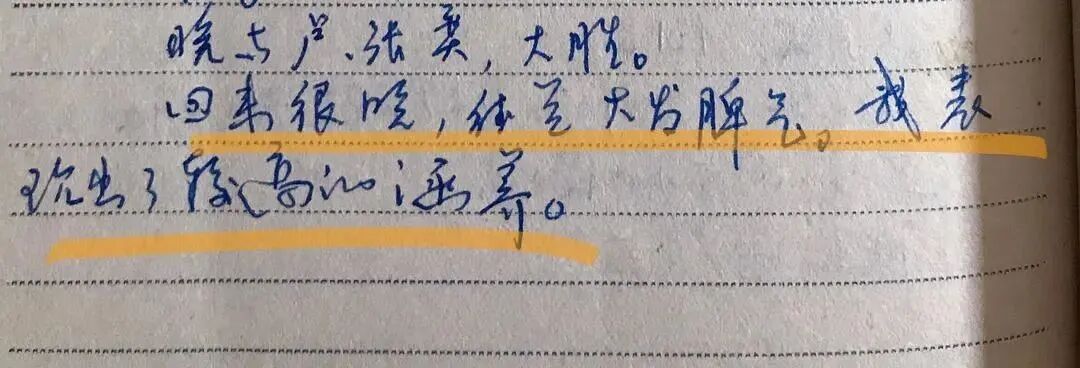 晚与卢、张奕,大胜。
回来很晚,桂兰大发脾气。我表
现出了较高的涵养。